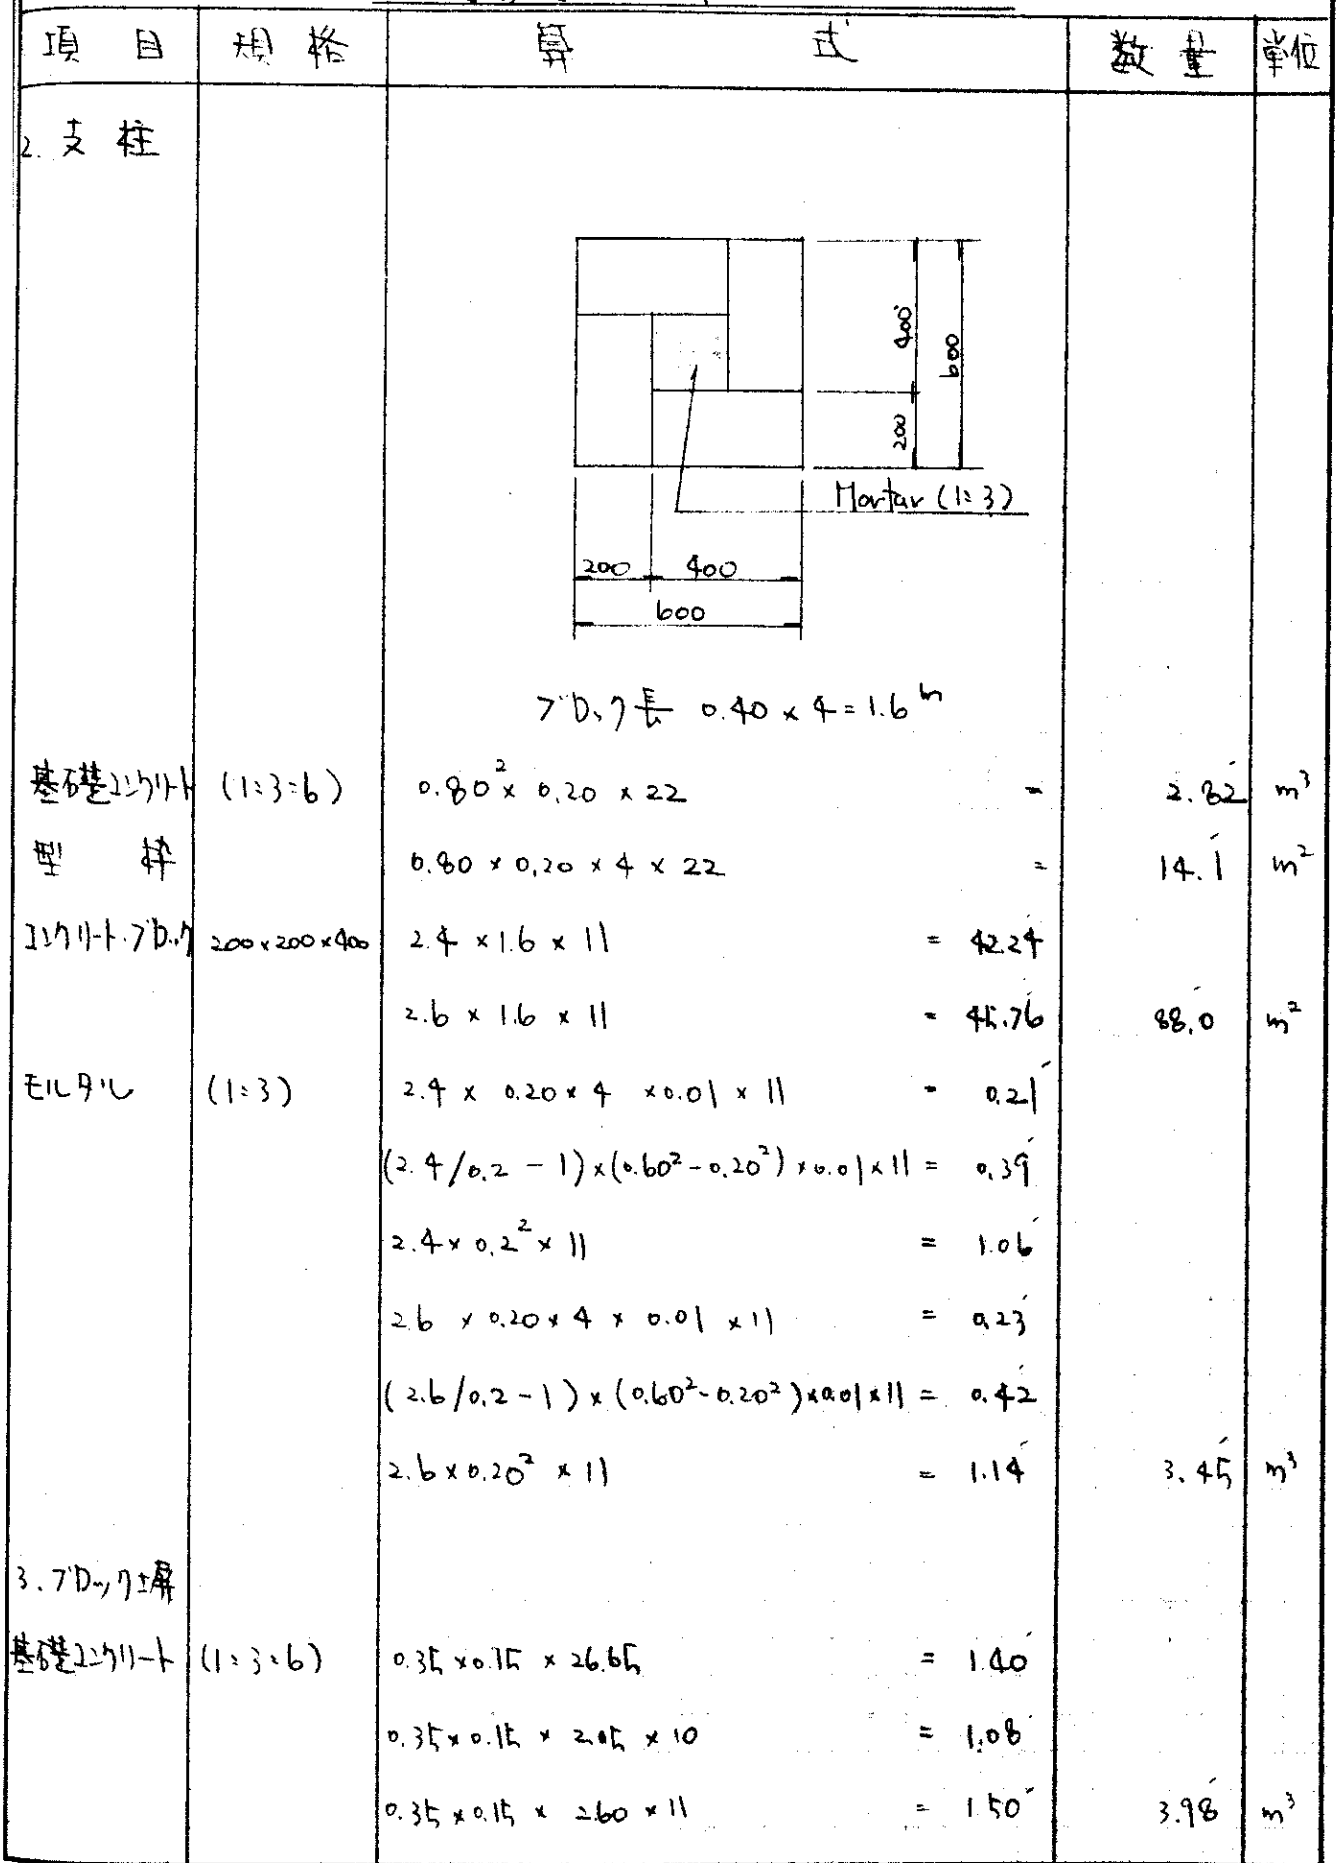 項 目 規 格 算 式 数 量 単位
2. 支 柱
400
600
200
Mortar (1:3)
200 400
600
ブロック長 0.40 × 4 = 1.6 m
基礎コンクリート (1:3:6) 0.80² × 0.20 × 22 = 2.82 m³
型 枠 0.80 × 0.20 × 4 × 22 = 14.1 m²
コンクリート・ブロック 200×200×400 2.4 × 1.6 × 11 = 42.24
2.6 × 1.6 × 11 = 45.76 88.0 m²
モルタル (1:3) 2.4 × 0.20 × 4 × 0.01 × 11 = 0.21
(2.4/0.2 - 1) × (0.60² - 0.20²) × 0.01 × 11 = 0.39
2.4 × 0.2² × 11 = 1.06
2.6 × 0.20 × 4 × 0.01 × 11 = 0.23
(2.6/0.2 - 1) × (0.60² - 0.20²) × 0.01 × 11 = 0.42
2.6 × 0.20² × 11 = 1.14 3.45 m³
3. ブロック塀
基礎コンクリート (1:3:6) 0.35 × 0.15 × 26.65 = 1.40
0.35 × 0.15 × 2.05 × 10 = 1.08
0.35 × 0.15 × 2.60 × 11 = 1.50 3.98 m³